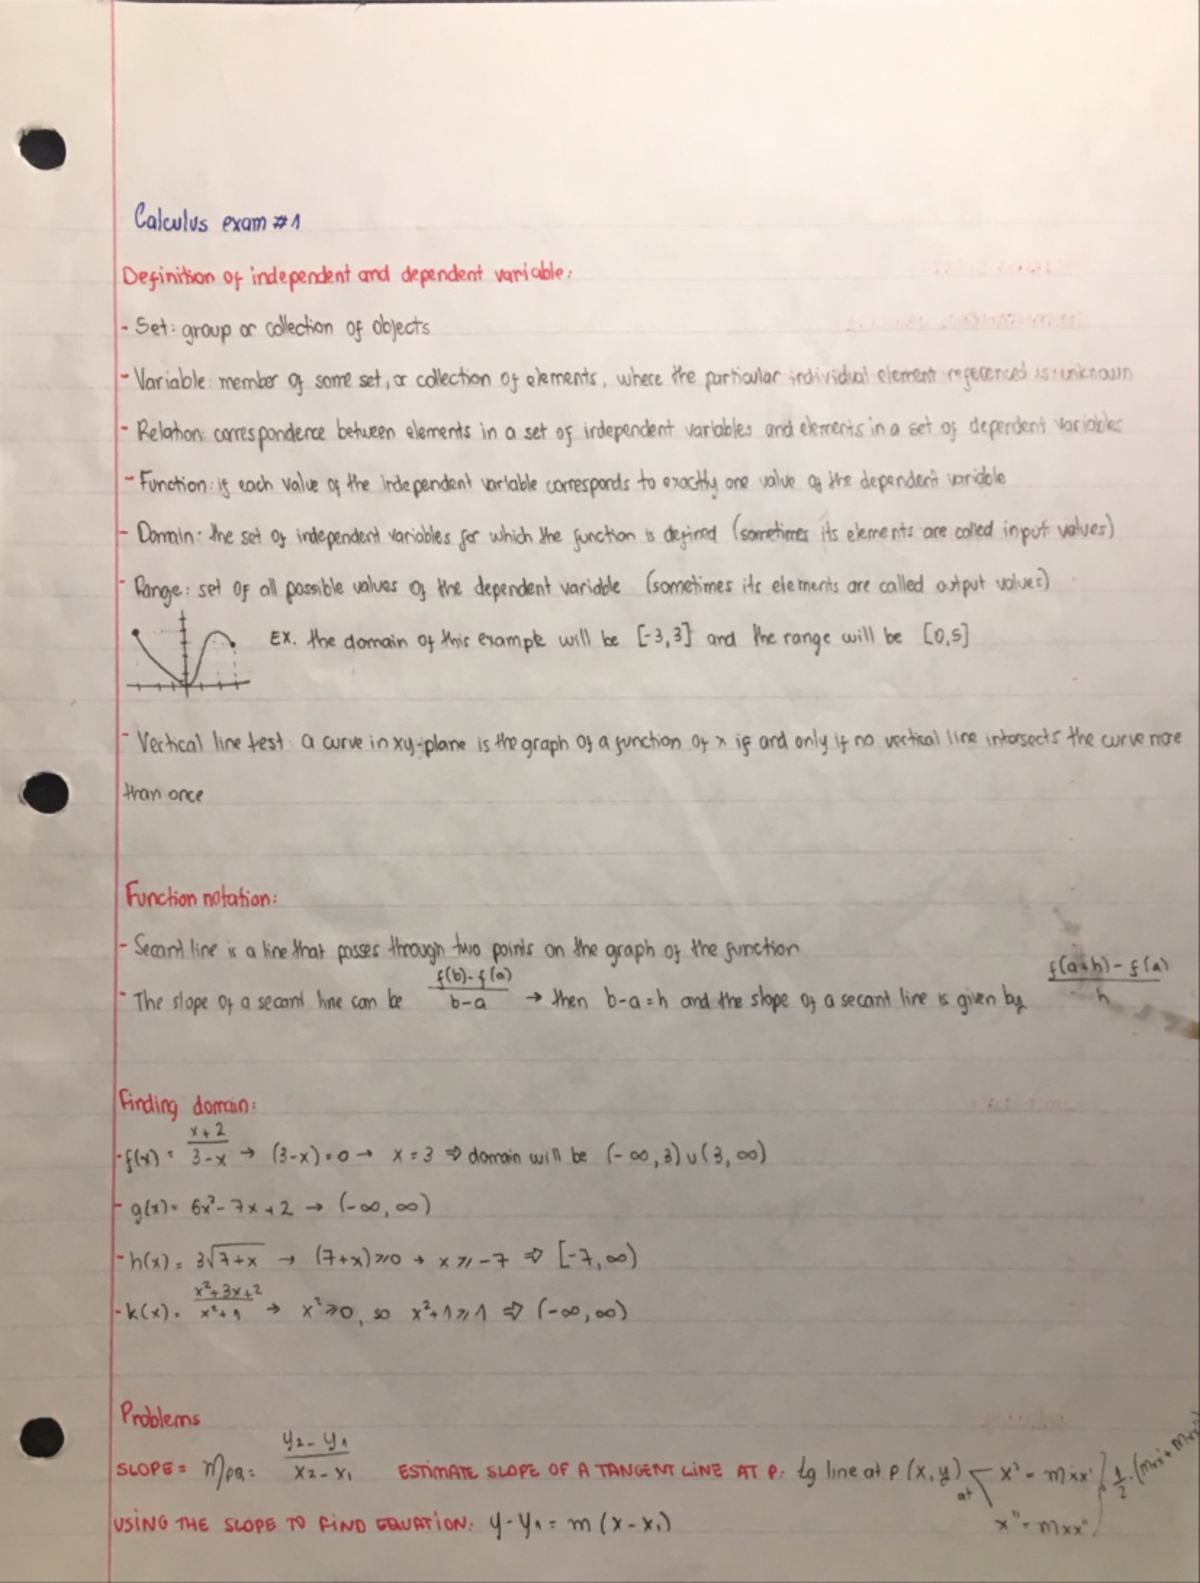 Calculus exam #1
Definition of independent and dependent variable:
- Set: group or collection of objects
- Variable: member of some set, or collection of elements, where the particular individual element referenced is unknown
- Relation: correspondence between elements in a set of independent variables and elements in a set of dependent variables
- Function: if each value of the independent variable corresponds to exactly one value of the dependent variable
- Domain: the set of independent variables for which the function is defined (sometimes its elements are called input values)
- Range: set of all possible values of the dependent variable (sometimes its elements are called output values)
EX. the domain of this example will be [-3,3] and the range will be [0,5]
- Vertical line test: a curve in xy-plane is the graph of a function of x if and only if no vertical line intersects the curve more
than once
Function notation:
- Secant line is a line that passes through two points on the graph of the function
- The slope of a secant line can be (f(b)-f(a))/(b-a) → then b-a=h and the slope of a secant line is given by (f(a+h)-f(a))/h
Finding domain:
- f(x) = (x+2)/(3-x) → (3-x)=0 → x=3 ⇒ domain will be (-∞,3)∪(3,∞)
- g(x)= 6x²-7x+2 → (-∞,∞)
- h(x) = 3√(7+x) → (7+x)≥0 → x≥-7 ⇒ [-7,∞)
- k(x) = (x²+3x+2)/(x²+1) → x²≥0, so x²+1≥1 ⇒ (-∞,∞)
Problems
SLOPE = m_PQ = (y₂-y₁)/(x₂-x₁) ESTIMATE SLOPE OF A TANGENT LINE AT P: tg line at P(x,y) at x' = mxx' } 1/2·(mxx'+mxx")
x" = mxx"
USING THE SLOPE TO FIND EQUATION: y-y₁ = m(x-x₁)